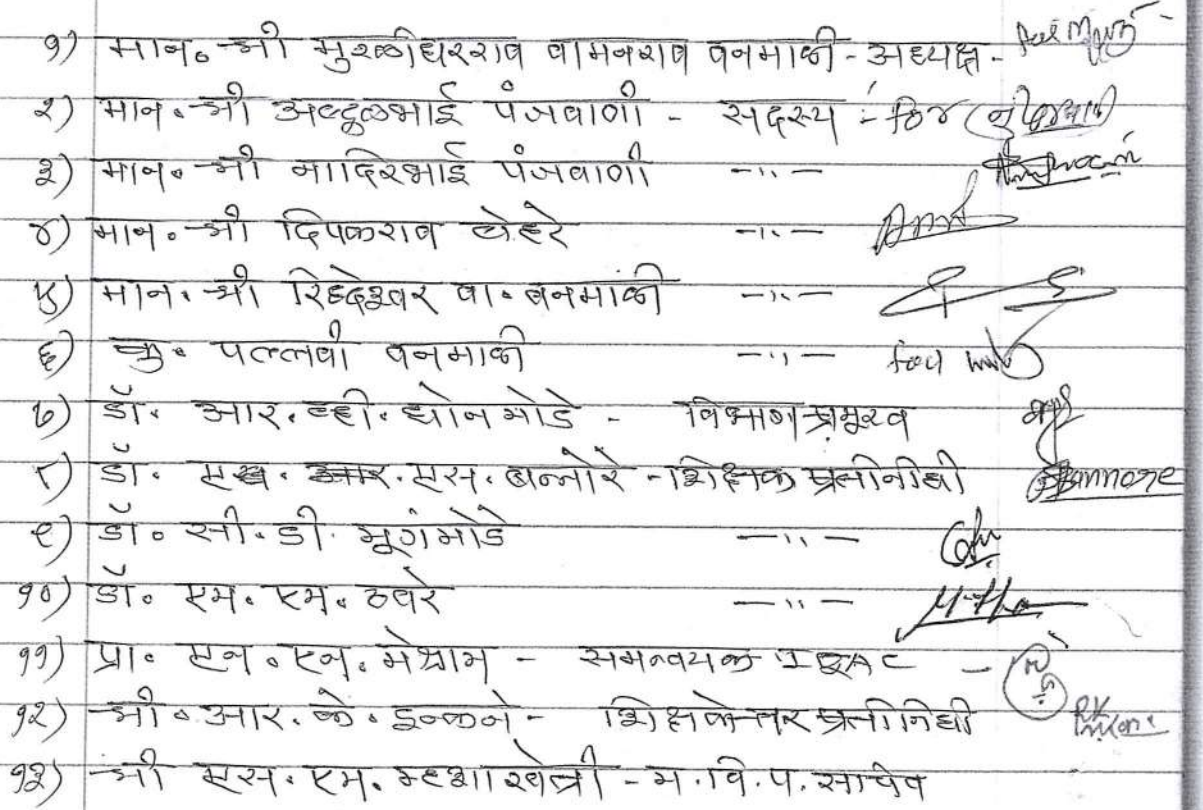 १) मान. श्री मुरळीधरराव वामनराव वनमाळी - अध्यक्ष -
२) मान. श्री अब्दुलभाई पंजवाणी - सदस्य :-
३) मान. श्री नादिरभाई पंजवाणी -"-
४) मान. श्री दिपकराव वेहरे -"-
५) मान. श्री रिद्धेश्वर वा. वनमाळी -"-
६) कु. पल्लवी वनमाळी -"-
७) डॉ. आर. व्ही. घोनमोडे - विभाग प्रमूख
८) डॉ. एस. बन्नोरे - शिक्षक प्रतीनिधी Bannore
९) डॉ. सी. डी. मूगंमोडे -"-
१०) डॉ. एम. एम. ठवरे -"-
११) प्रा. एन. एन. मेश्राम - समन्वयक IQAC -
१२) श्री. आर. के. इन्कने - शिक्षकेत्तर प्रतीनिधी
१३) श्री एस. एम. म्हशाखेत्री - म. वि. प. सचिव